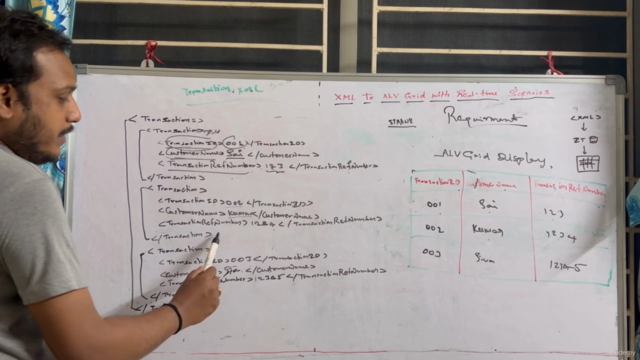 Transaction.xml
XML To ALV Grid with Real-time Scenarios
<Transactions>
<Transaction>
<TransactionID>001</TransactionID>
<CustomerName>Sai</CustomerName>
<TransactionRefNumber>123</TransactionRefNumber>
</Transaction>
<Transaction>
<TransactionID>002</TransactionID>
<CustomerName>Kumar</CustomerName>
<TransactionRefNumber>1234</TransactionRefNumber>
</Transaction>
<Transaction>
<TransactionID>003</TransactionID>
<TransactionRefNumber>12345</TransactionRefNumber>
Requirment
<XML>
ALV Grid Display
TransactionID
001 Sai 123
002 Kumar 1234
003 12345